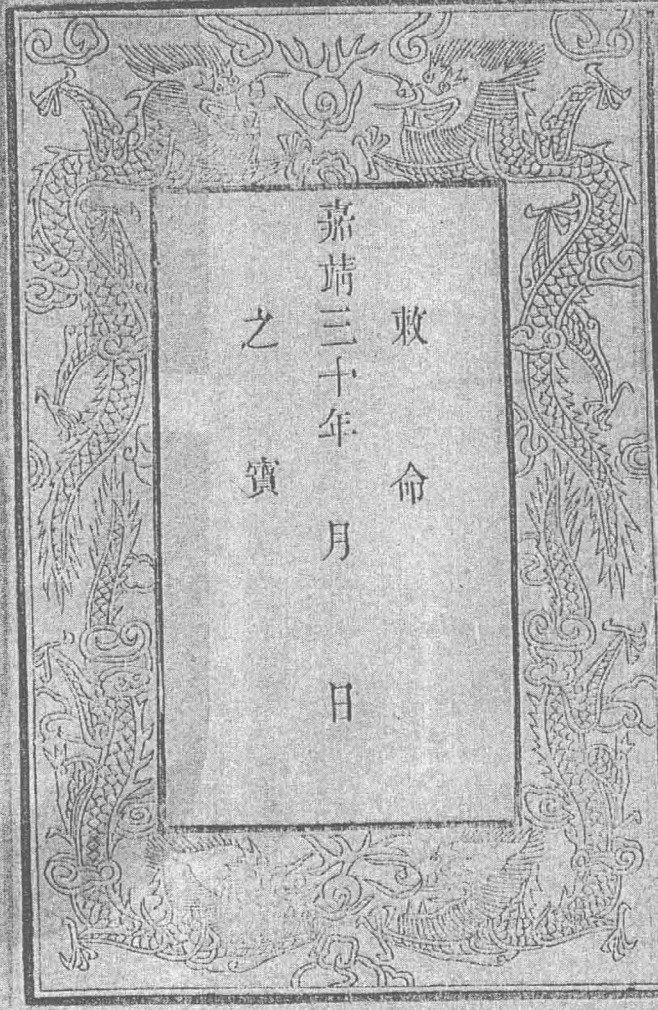 敕命
嘉靖三十年 月 日
之寶